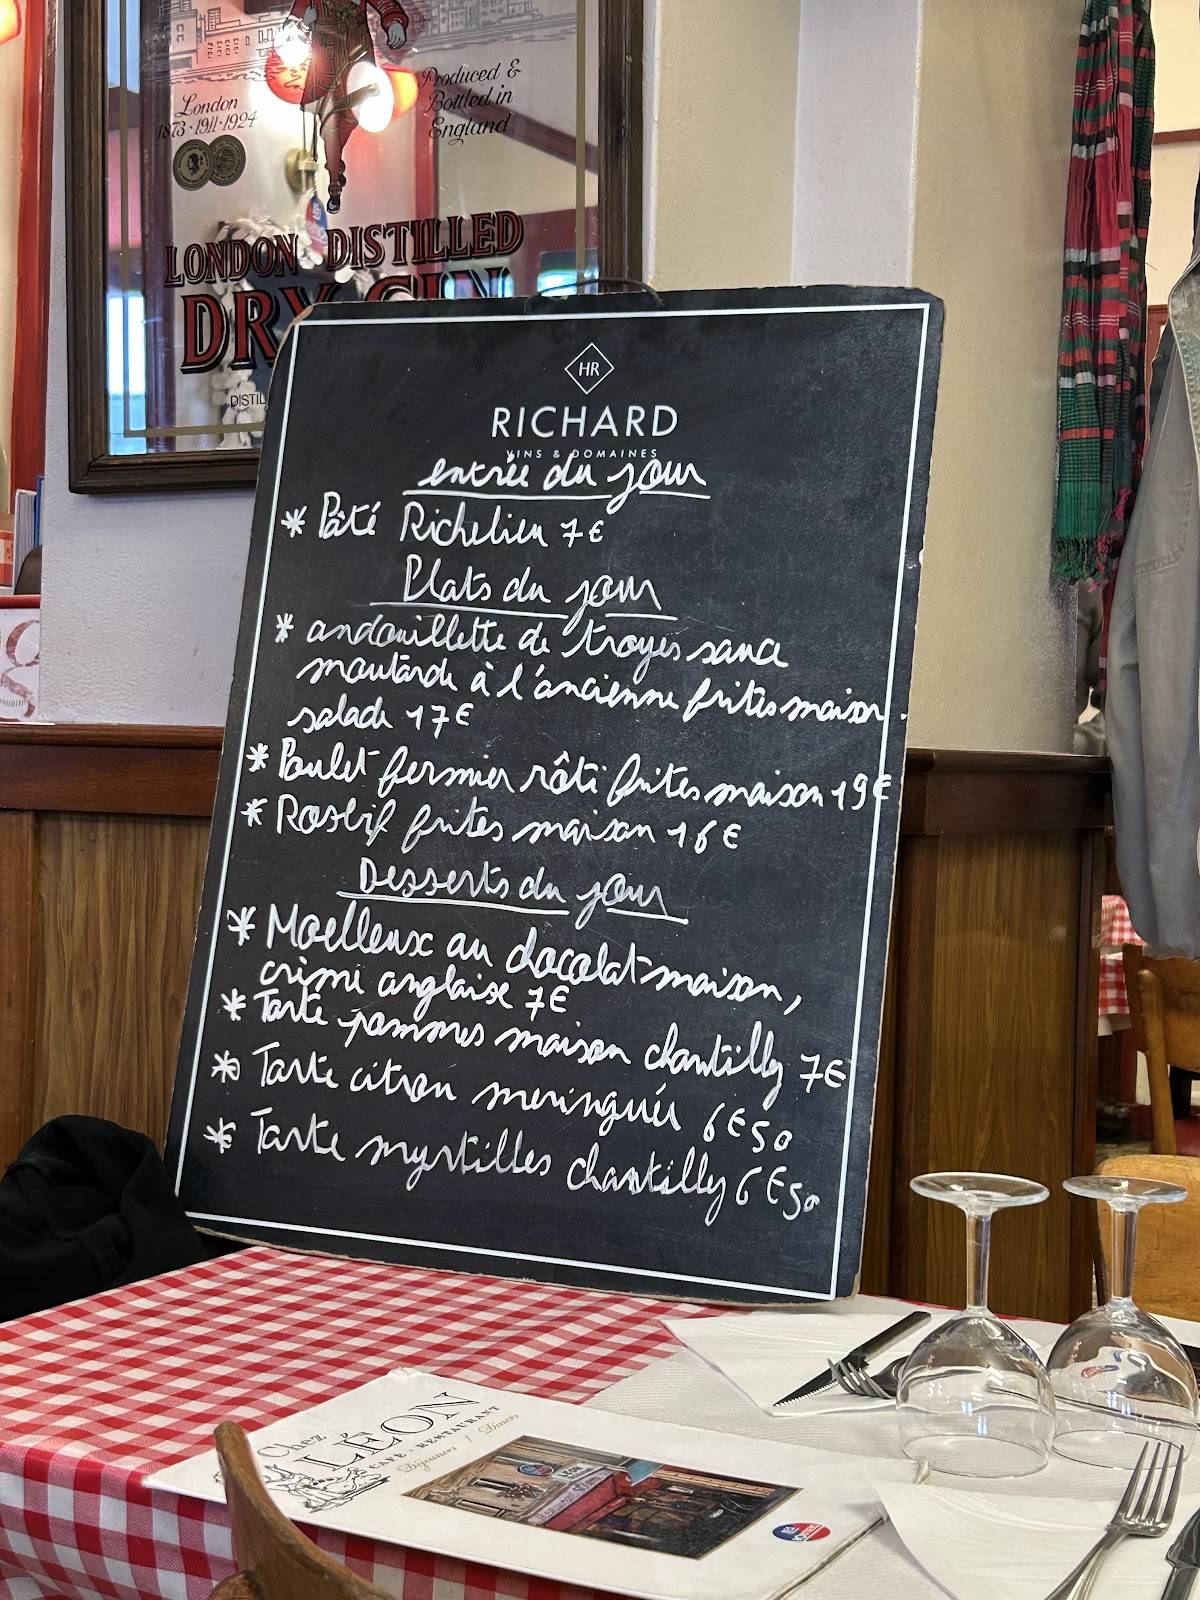 London
1873 · 1911 · 1924
Produced &
Bottled in
England
LONDON DISTILLED
DRY GIN
DISTIL
HR
RICHARD
VINS & DOMAINES
entrée du jour
* Pâté Richelieu 7€
Plats du jour
* andouillette de troyes sauce
moutarde à l'ancienne frites maison.
salade 17€
* Poulet fermier rôti frites maison 19€
* Rosbif frites maison 16€
Desserts du jour
* Moelleux au chocolat maison,
crème anglaise 7€
* Tarte pommes maison chantilly 7€
* Tarte citron meringuée 6€50
* Tarte myrtilles chantilly 6€50
Chez
LÉON
CAFÉ - RESTAURANT
Déjeuners / Diners